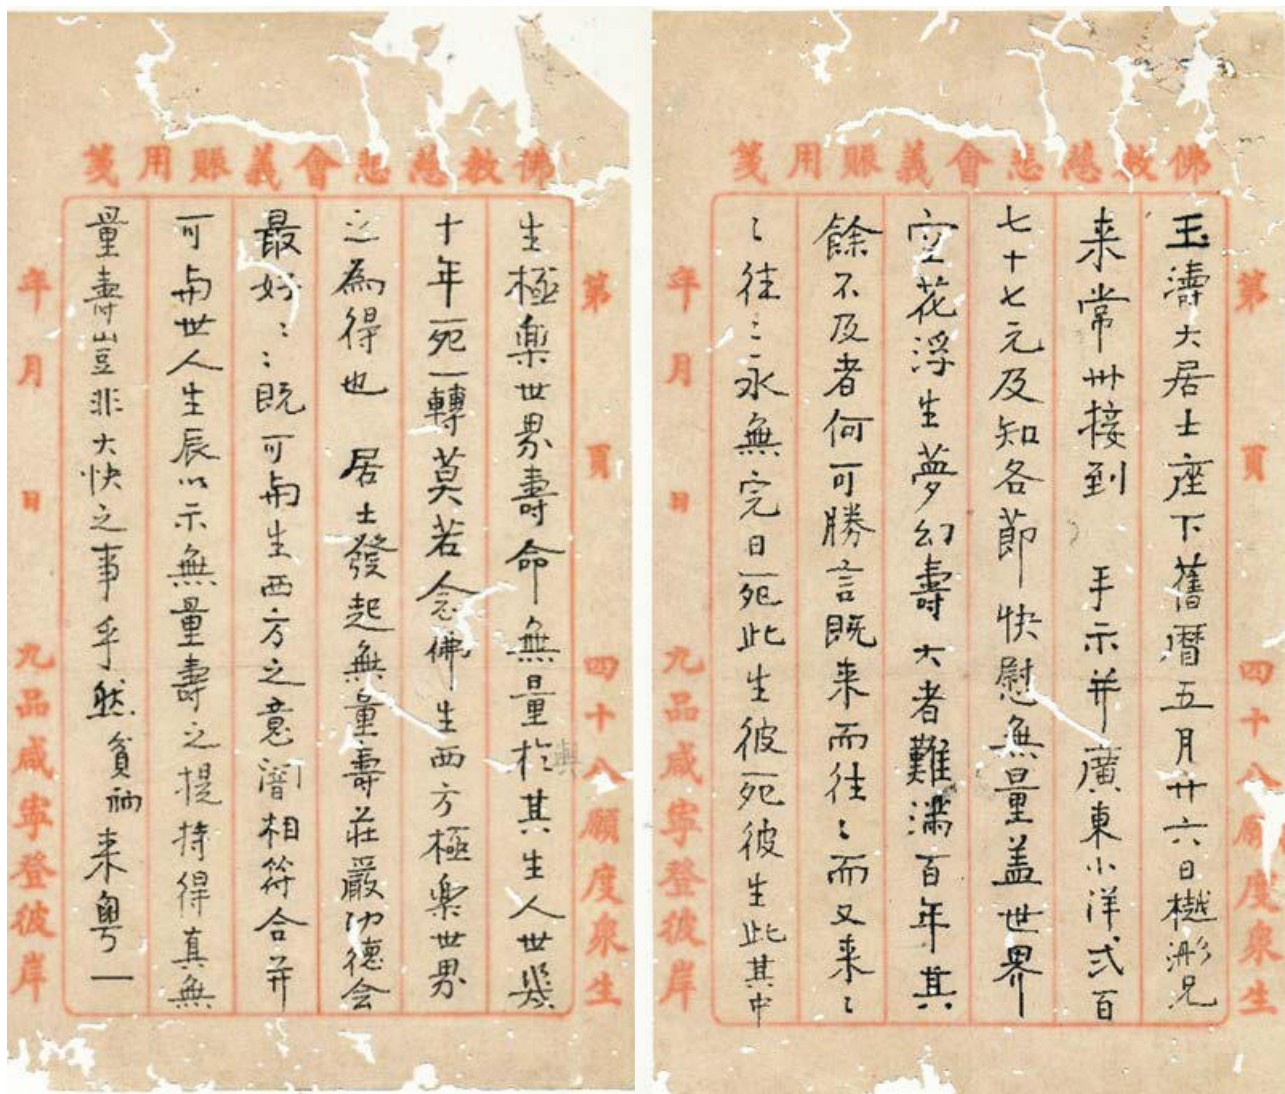 佛教慈悲會義賑用箋
第 頁 四十八願度衆生
玉濤大居士座下舊曆五月廿六日樾澎兄
来常州接到 手示并廣東小洋弍百
七十七元及知各節快慰無量盖世界
空花浮生夢幻壽大者難滿百年其
餘不及者何可勝言既来而往〻而又来〻
〻往〻永無完日死此生彼死彼生此其中
年 月 日 九品咸寧登彼岸
佛教慈悲會義賑用箋
第 頁 四十八願度衆生
生極樂世界壽命無量於其生人世幾
十年死一轉莫若念佛生西方極樂世界
之為得也 居士發起無量壽莊嚴功德会
最好〻〻既可與生西方之意闇相符合并
可與世人生辰以示無量壽之提持得真無
量壽豈非大快之事乎然貧衲来粵一
年 月 日 九品咸寧登彼岸